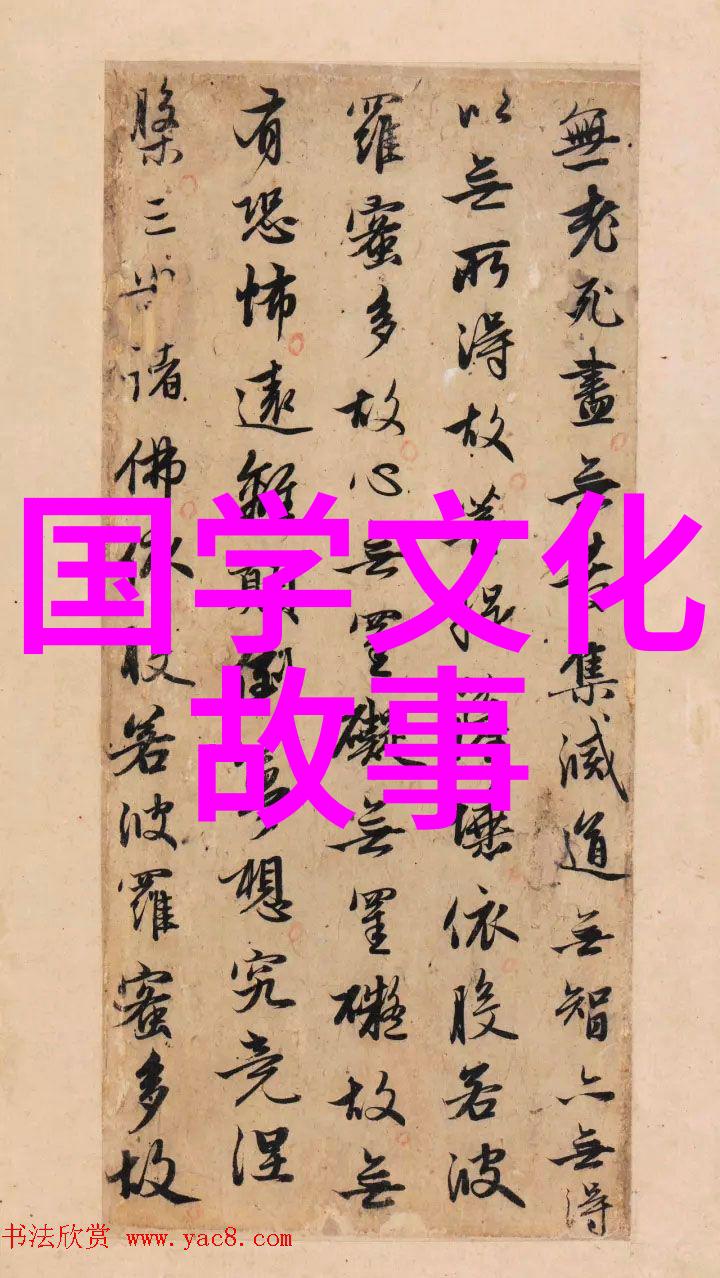 無老死盡无苦集滅道无智亦无得
以无所得故菩提薩埵依般若波
羅蜜多故心无罣礙无罣礙故无
有恐怖遠離顛倒夢想究竟涅
槃三世諸佛依般若波羅蜜多故
国学文化
故事
书法欣赏 www.yac8.com